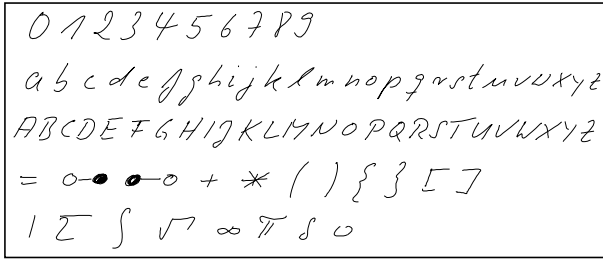 0 1 2 3 4 5 6 7 8 9
a b c d e f g h i j k l m n o p q r s t u v w x y z
A B C D E F G H I J K L M N O P Q R S T U V W X Y Z
= ○─● ●─○ + * ( ) { } [ ]
| Σ ∫ √ ∞ π δ